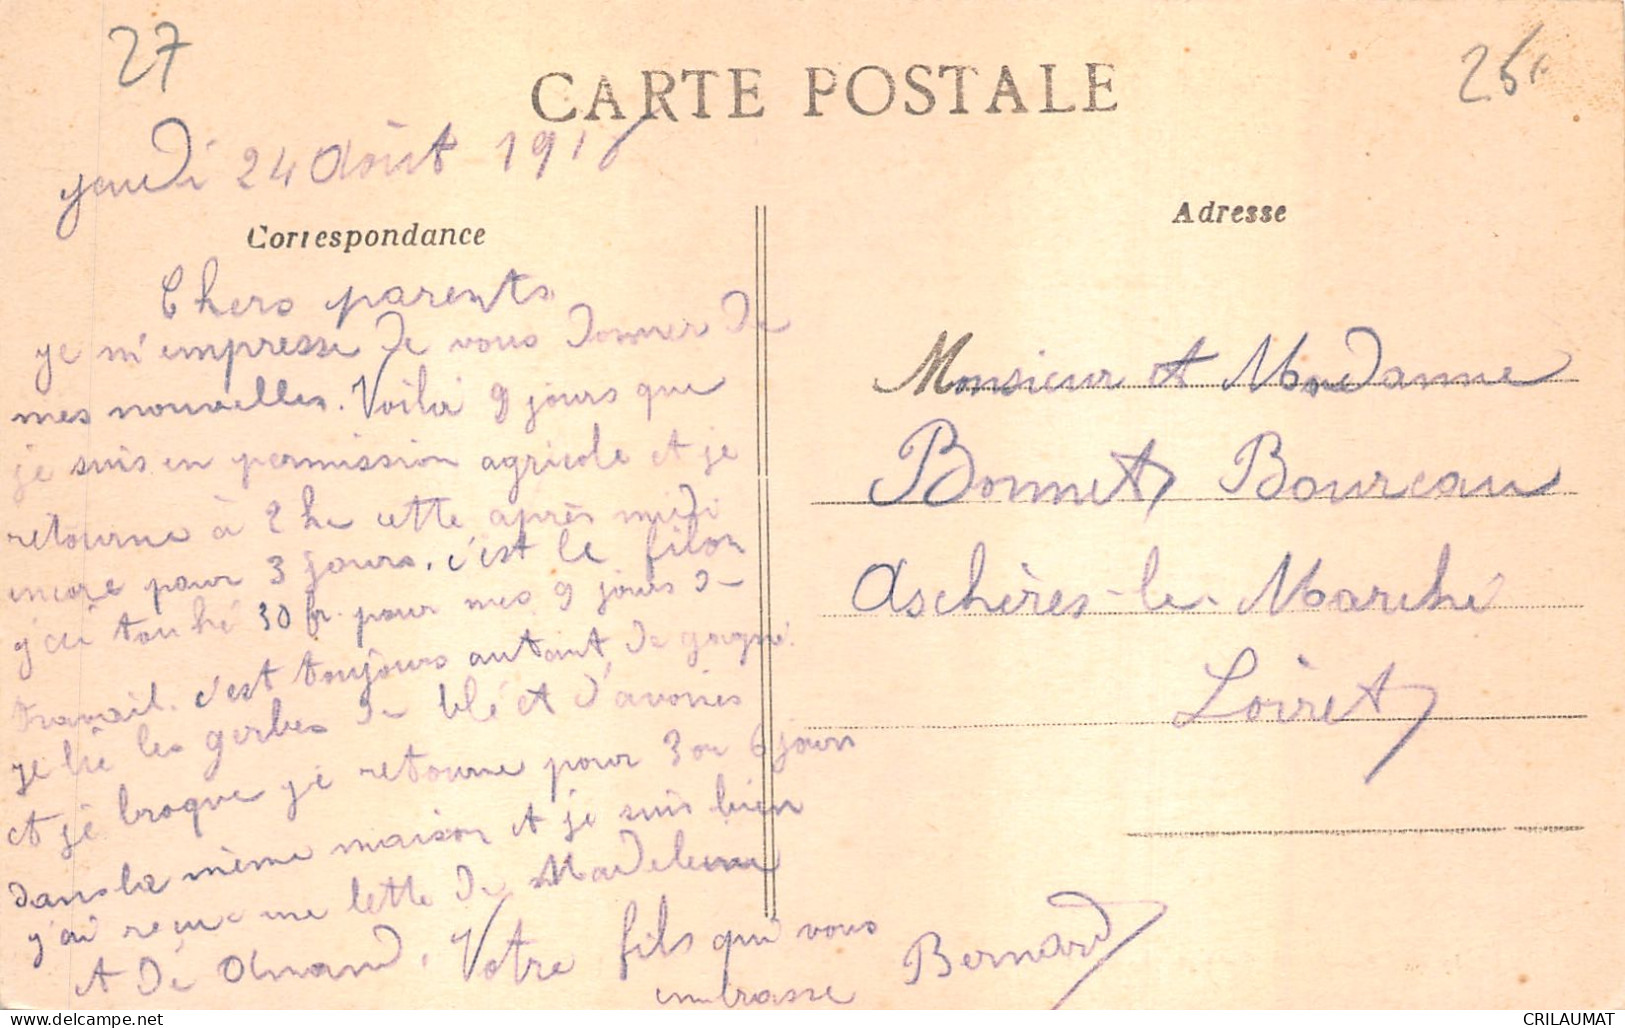 27
25
CARTE POSTALE
jeudi 24 Août 1916
Correspondance
Chers parents
je m'empresse de vous donner de
mes nouvelles. Voilà 9 jours que
je suis en permission agricole et je
retourne à 2 h cette après midi
encore pour 3 jours. c'est le filon
j'ai touché 30 fr. pour mes 9 jours de
travail. c'est toujours autant de gagné.
je lie les gerbes de blé et d'avoines
et je broque je retourne pour 3 ou 6 jours
dans la même maison et je suis bien
j'ai reçue une lette de Madeleine
et de Amand. Votre fils qui vous
embrasse Bernard
Adresse
Monsieur et Madamme
Bonnet Boureau
Aschères-le-Marché
Loiret
CRILAUMAT